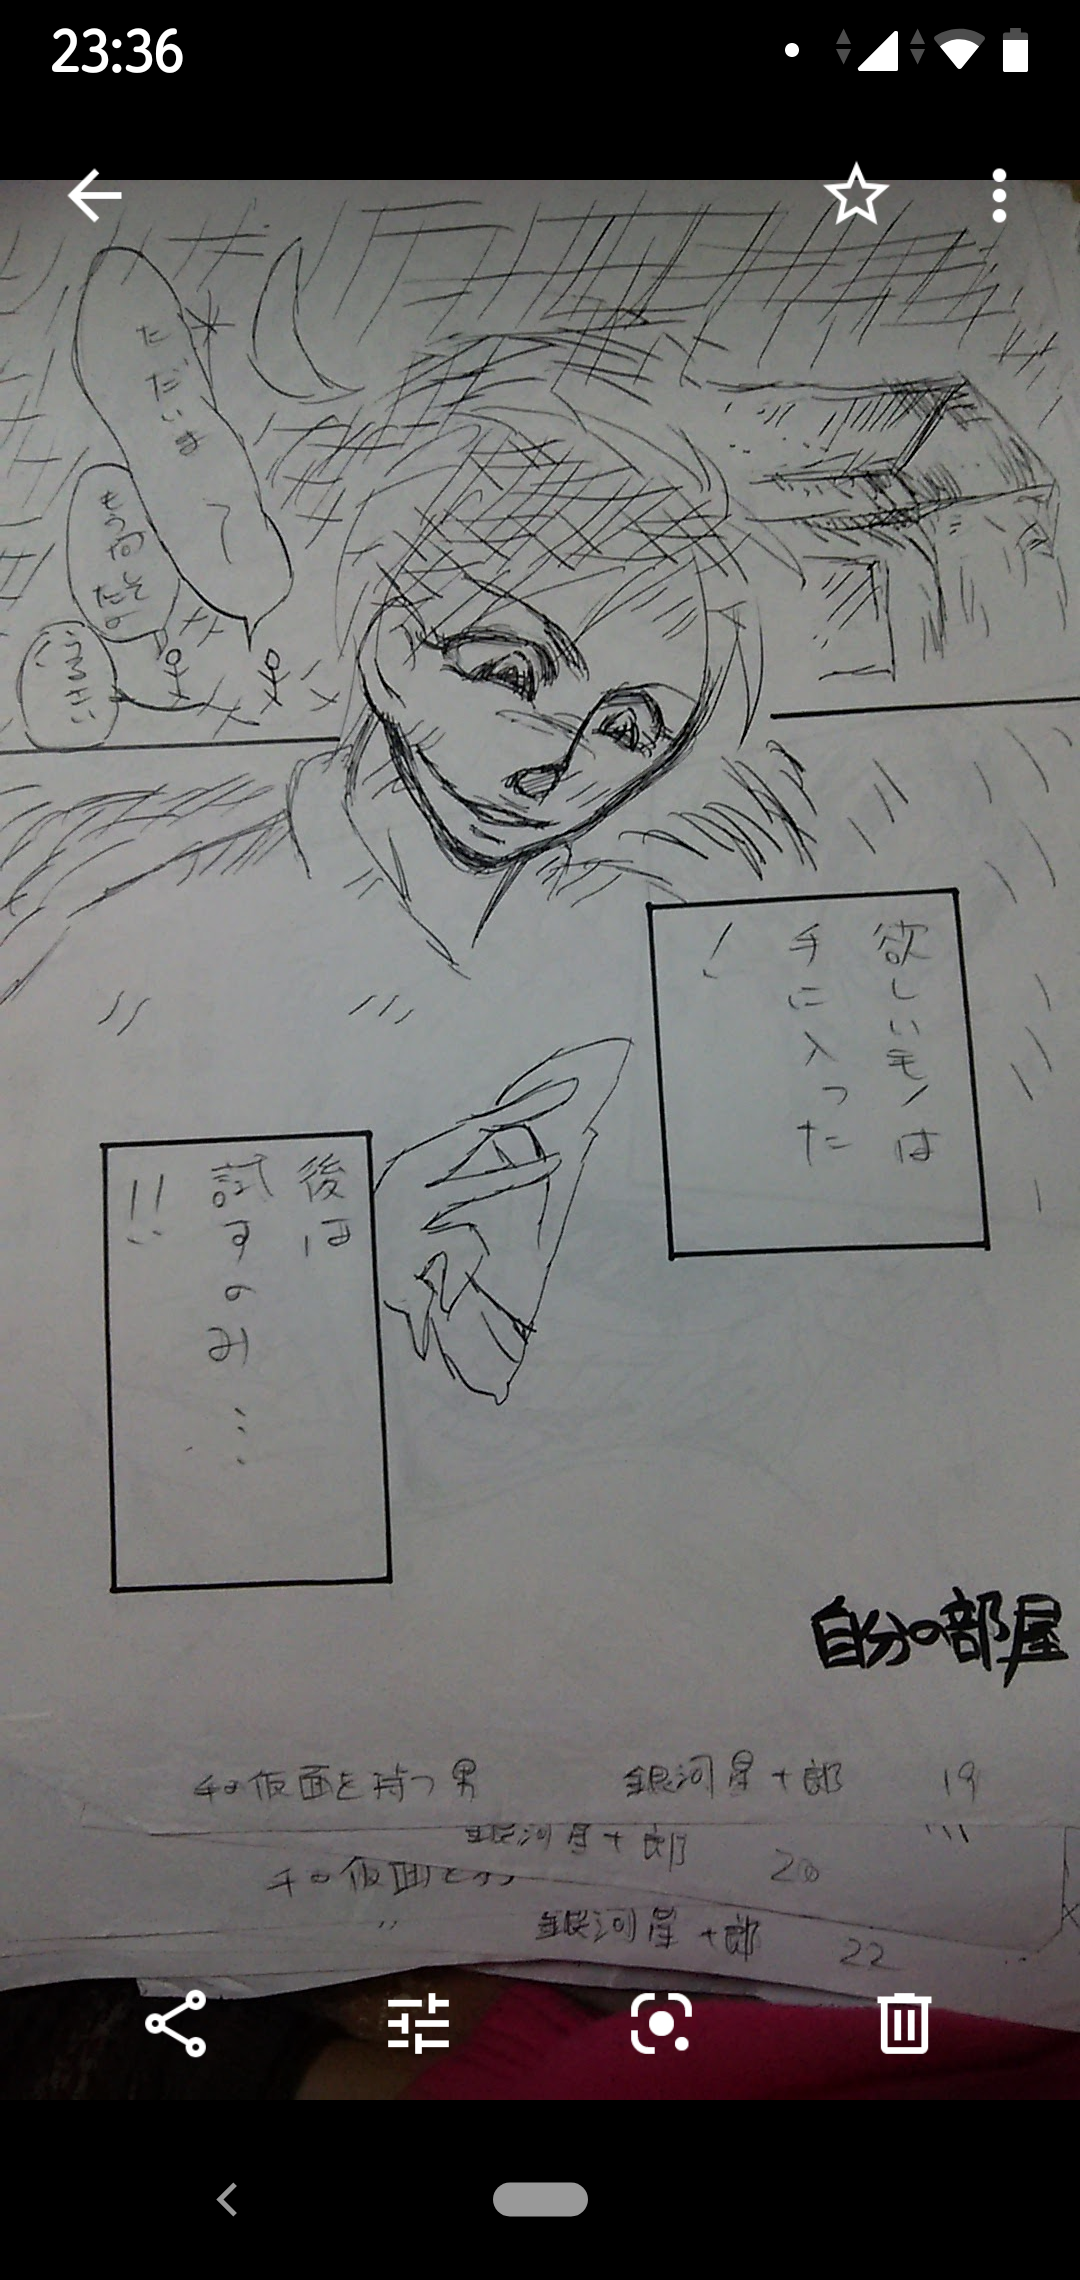 23:36
ただいまー
もう何
だぞ
うるさい
欲しいモノは
手に入った
!
後は
試すのみ…
!!
自分の部屋
仮面を持つ男 銀河星十郎 19
銀河星十郎 20
仮面
〃 銀河星十郎 22